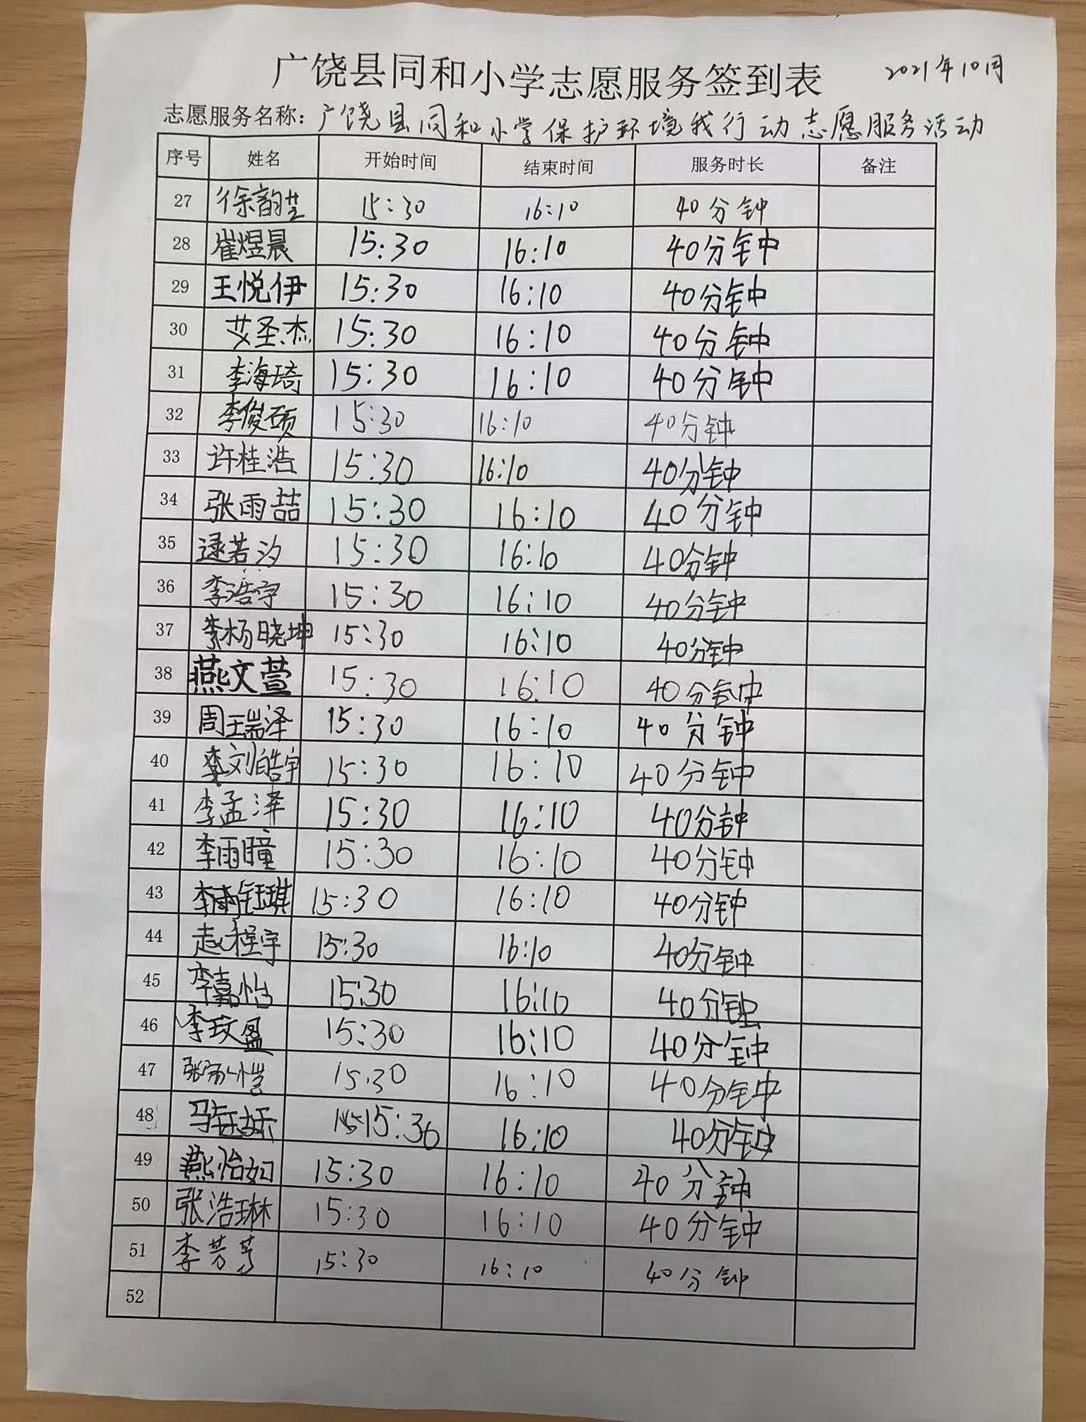 广饶县同和小学志愿服务签到表 2021年10月
志愿服务名称：广饶县同和小学保护环境我行动志愿服务活动
序号 姓名 开始时间 结束时间 服务时长 备注
27 徐韵芝 15:30 16:10 40分钟
28 崔煜晨 15:30 16:10 40分钟
29 王悦伊 15:30 16:10 40分钟
30 艾圣杰 15:30 16:10 40分钟
31 李海琦 15:30 16:10 40分钟
32 李俊硕 15:30 16:10 40分钟
33 许桂浩 15:30 16:10 40分钟
34 张雨喆 15:30 16:10 40分钟
35 逯若汐 15:30 16:10 40分钟
36 李浩宇 15:30 16:10 40分钟
37 李杨晓坤 15:30 16:10 40分钟
38 燕文萱 15:30 16:10 40分钟
39 周王瑞泽 15:30 16:10 40分钟
40 李刘皓宇 15:30 16:10 40分钟
41 李孟泽 15:30 16:10 40分钟
42 李雨瞳 15:30 16:10 40分钟
43 15:30 16:10 40分钟
44 赵程宇 15:30 16:10 40分钟
45 李嘉怡 15:30 16:10 40分钟
46 李玟盈 15:30 16:10 40分钟
47 15:30 16:10 40分钟
48 15:30 16:10 40分钟
49 燕怡如 15:30 16:10 40分钟
50 张浩琳 15:30 16:10 40分钟
51 李芳 15:30 16:10 40分钟
52